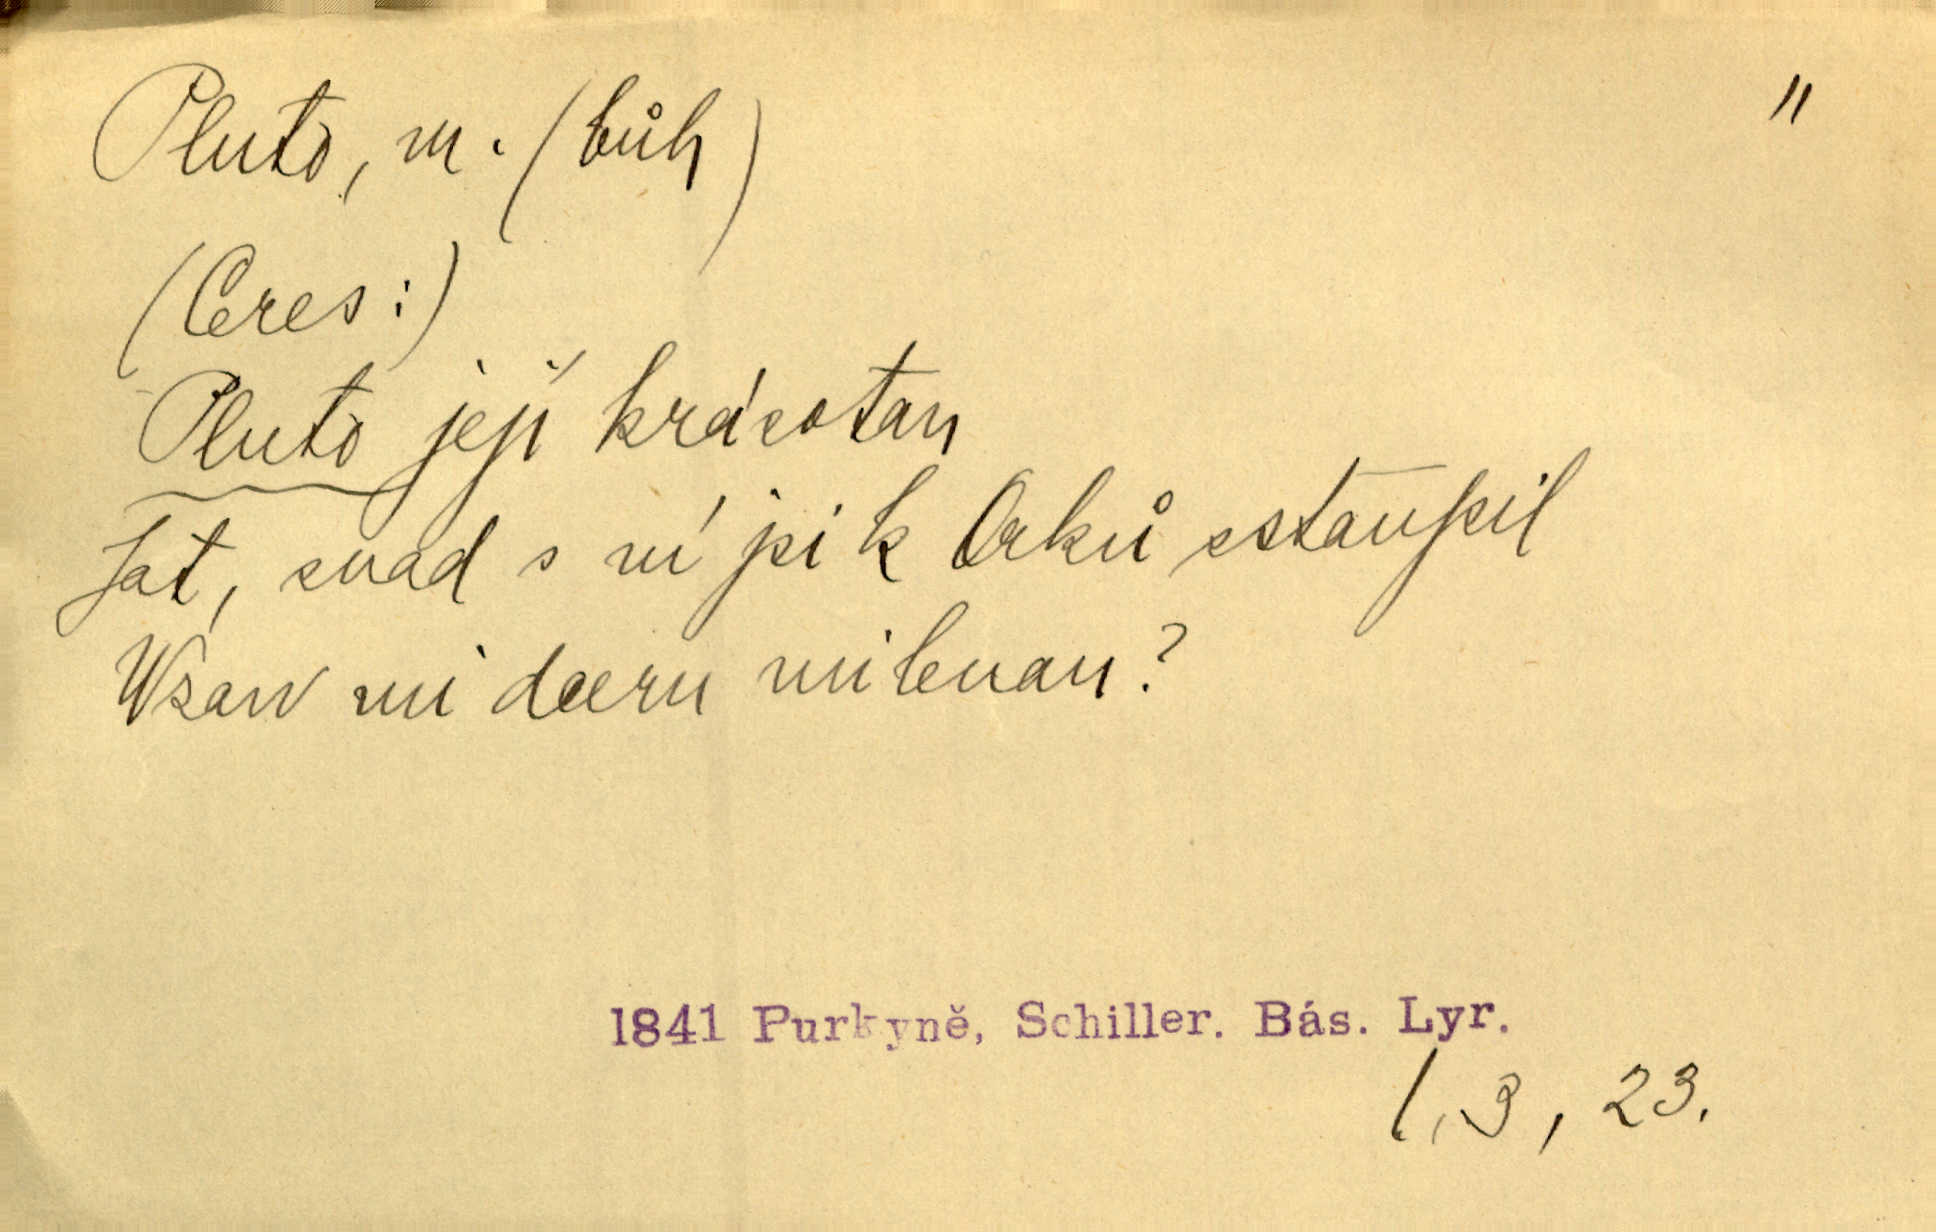 Pluto, m. (bůh) "
(Ceres:)
Pluto její krásotau
Jat, snad s ní již k Orků sstaupil
Wzaw mi dceru milenau?
1841 Purkyně, Schiller. Bás. Lyr.
1, 3, 23.